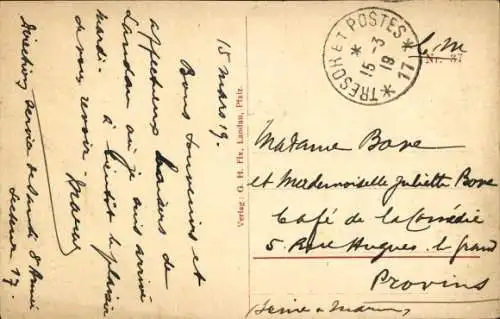 15 mars 19.
Bons souvenirs et
affectueux baisers de
Landau où je suis arrivé
mardi - à bientôt le plaisir
de vous revoir -
Direction service de Santé 8 Armée
Secteur 17.
Verlag: G. H. Fix, Landau, Pfalz.
TRESOR ET POSTES
15-3
19
* 17 *
F. M
Nr. 37
Madame Bove
et Mademoiselle Juliette Bove
Café de la Comédie
5. Rue Hugues. le grand
Provins
(Seine & Marne)